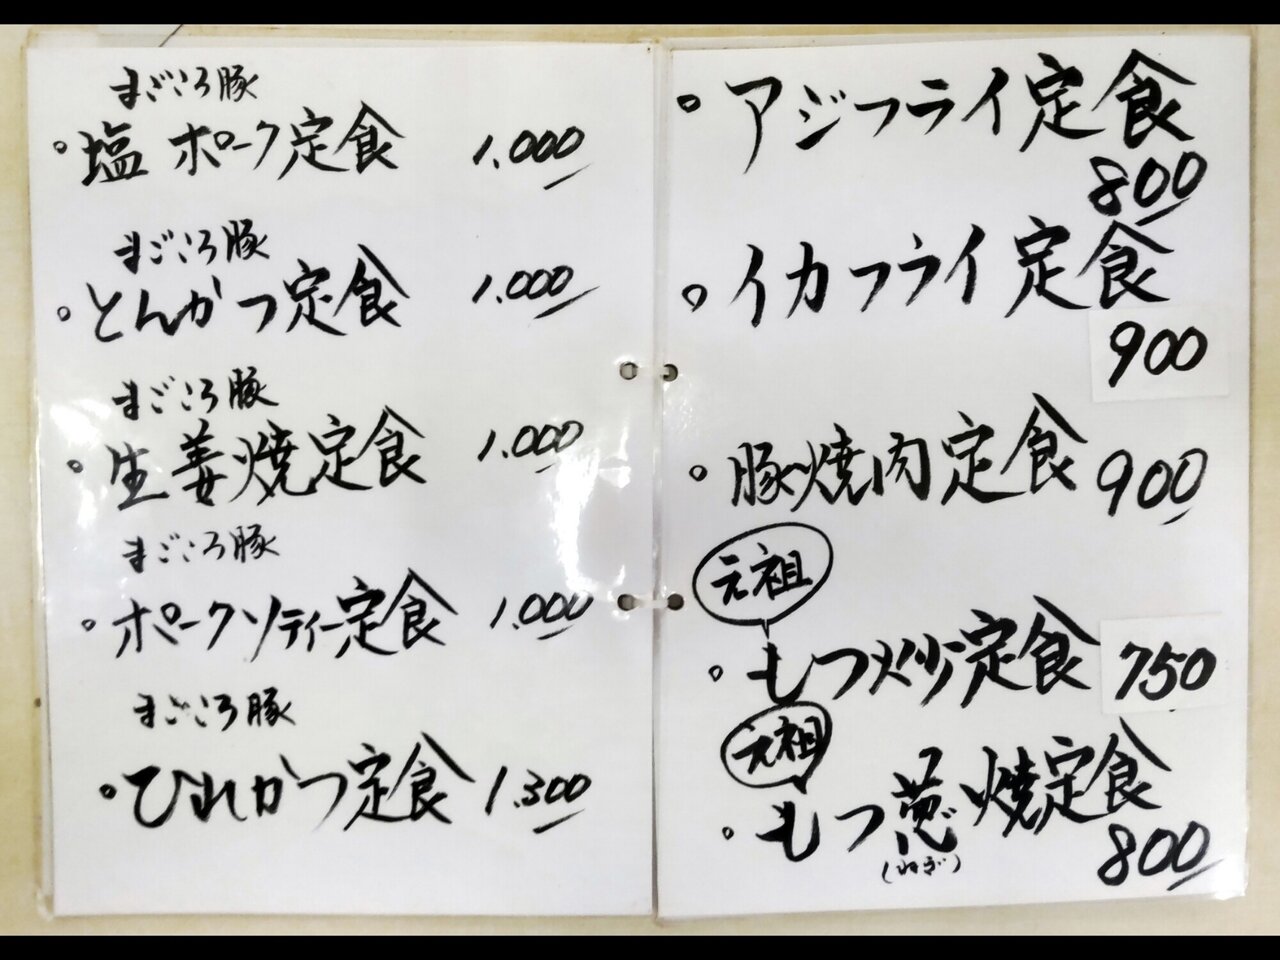 まごころ豚
。塩ポーク定食 1.000
まごころ豚
。とんかつ定食 1.000
まごころ豚
。生姜焼定食 1.000
まごころ豚
。ポークソティー定食 1.000
まごころ豚
。ひれかつ定食 1.300
。アジフライ定食
800
。イカフライ定食
900
。豚焼肉定食 900
元祖
。もつ炒定食 750
元祖
。もつ葱焼定食
(ねぎ)
800